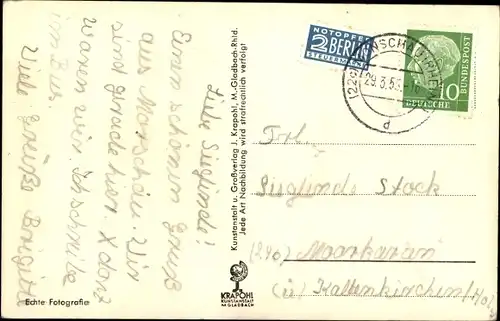 Liebe Sieglinde!
Einen schönen Gruß
aus Monschau. Wir
sind gerade hier. X dort
waren wir. Ich schreibe
im Bus.
Viele Grüße Brigitte
Echte Fotografie
Kunstanstalt u. Großverlag J. Krapohl, M.-Gladbach-Rhld.
Jede Art Nachbildung wird strafrechtlich verfolgt
KRAPOHL
KUNSTANSTALT
M.GLADBACH
NOTOPFER
2 BERLIN
STEUERMARKE
MONSCHAU
29.3.5
d
10
DEUTSCHE BUNDESPOST
Frl.
Sieglinde Stock
Moorkaten
(ü) Kaltenkirchen